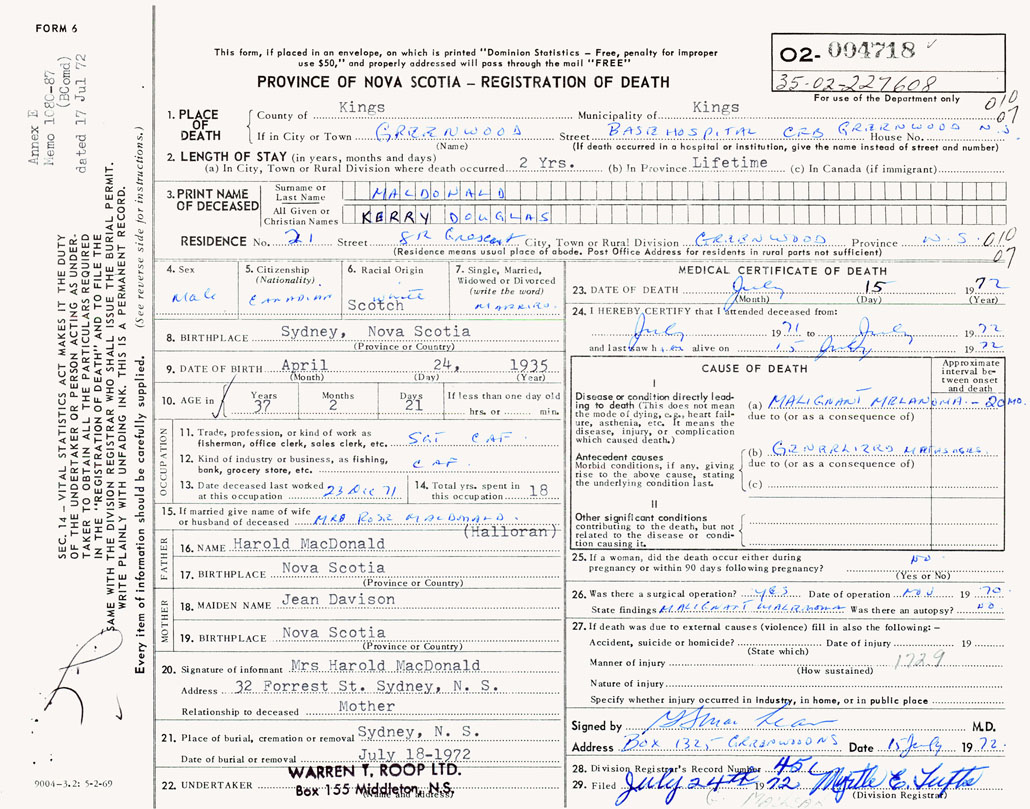 FORM 6
This form, if placed in an envelope, on which is printed "Dominion Statistics – Free, penalty for improper
use $50," and properly addressed will pass through the mail "FREE"
PROVINCE OF NOVA SCOTIA – REGISTRATION OF DEATH
02- 004718
35-02-227608
For use of the Department only
010
07
Annex E
Memo 1080-87
(BComd)
dated 17 Jul 72
SEC. 14 – VITAL STATISTICS ACT MAKES IT THE DUTY
OF THE UNDERTAKER OR PERSON ACTING AS UNDER-
TAKER TO OBTAIN ALL THE PARTICULARS REQUIRED
IN THE "REGISTRATION OF DEATH" AND TO FILE THE
SAME WITH THE DIVISION REGISTRAR WHO SHALL ISSUE THE BURIAL PERMIT.
WRITE PLAINLY WITH UNFADING INK. THIS IS A PERMANENT RECORD.
Every item of information should be carefully supplied. (See reverse side for instructions.)
9004-3.2: 5-2-69
1. PLACE OF DEATH
County of Kings Municipality of Kings
If in City or Town GREENWOOD Street BASE HOSPITAL CFB GREENWOOD N.S. House No.
(Name) (If death occurred in a hospital or institution, give the name instead of street and number)
2. LENGTH OF STAY (in years, months and days)
(a) In City, Town or Rural Division where death occurred 2 Yrs. (b) In Province Lifetime (c) In Canada (if immigrant)
3. PRINT NAME OF DECEASED
Surname or Last Name MACDONALD
All Given or Christian Names KERRY DOUGLAS
RESIDENCE No. 21 Street Crescent City, Town or Rural Division GREENWOOD Province N.S. 010
(Residence means usual place of abode. Post Office Address for residents in rural parts not sufficient) 07
4. Sex Male
5. Citizenship (Nationality) CANADIAN
6. Racial Origin white Scotch
7. Single, Married, Widowed or Divorced (write the word) MARRIED.
8. BIRTHPLACE Sydney, Nova Scotia
(Province or Country)
9. DATE OF BIRTH April 24, 1935
(Month) (Day) (Year)
10. AGE in Years 37 Months 2 Days 21 If less than one day old hrs. or min.
OCCUPATION
11. Trade, profession, or kind of work as fisherman, office clerk, sales clerk, etc. SGT CAF
12. Kind of industry or business, as fishing, bank, grocery store, etc. CAF
13. Date deceased last worked at this occupation 23 Dec 71
14. Total yrs. spent in this occupation 18
15. If married give name of wife or husband of deceased MRS ROSE MACDONALD (Halloran)
FATHER
16. NAME Harold MacDonald
17. BIRTHPLACE Nova Scotia
(Province or Country)
MOTHER
18. MAIDEN NAME Jean Davison
19. BIRTHPLACE Nova Scotia
(Province or Country)
20. Signature of informant Mrs Harold MacDonald
Address 32 Forrest St. Sydney, N. S.
Relationship to deceased Mother
21. Place of burial, cremation or removal Sydney, N. S.
Date of burial or removal July 18-1972
22. UNDERTAKER WARREN T. ROOP LTD.
Box 155 Middleton, N.S.
(Name and address)
MEDICAL CERTIFICATE OF DEATH
23. DATE OF DEATH July 15 1972
(Month) (Day) (Year)
24. I HEREBY CERTIFY that I attended deceased from:
July 1971 to July 1972
and last saw h im alive on 15 July 1972
CAUSE OF DEATH
Approximate interval between onset and death
I
Disease or condition directly leading to death (This does not mean the mode of dying, e.g., heart failure, asthenia, etc. It means the disease, injury, or complication which caused death.)
(a) MALIGNANT MELANOMA - 20 MO.
due to (or as a consequence of)
Antecedent causes
Morbid conditions, if any, giving rise to the above cause, stating the underlying condition last.
(b) GENERALIZED
due to (or as a consequence of)
(c)
II
Other significant conditions
contributing to the death, but not related to the disease or condition causing it.
25. If a woman, did the death occur either during pregnancy or within 90 days following pregnancy? NO
(Yes or No)
26. Was there a surgical operation? YES Date of operation NOV 1970
State findings MALIGNANT MELANOMA Was there an autopsy? NO
27. If death was due to external causes (violence) fill in also the following: –
Accident, suicide or homicide? Date of injury 19
(State which)
Manner of injury 1729
(How sustained)
Nature of injury
Specify whether injury occurred in industry, in home, or in public place
Signed by M.D.
Address Box 1325 GREENWOOD NS Date 15 July 1972.
28. Division Registrar's Record Number 451
29. Filed July 24th 1972 Myrtle E. Tufts
(Division Registrar)